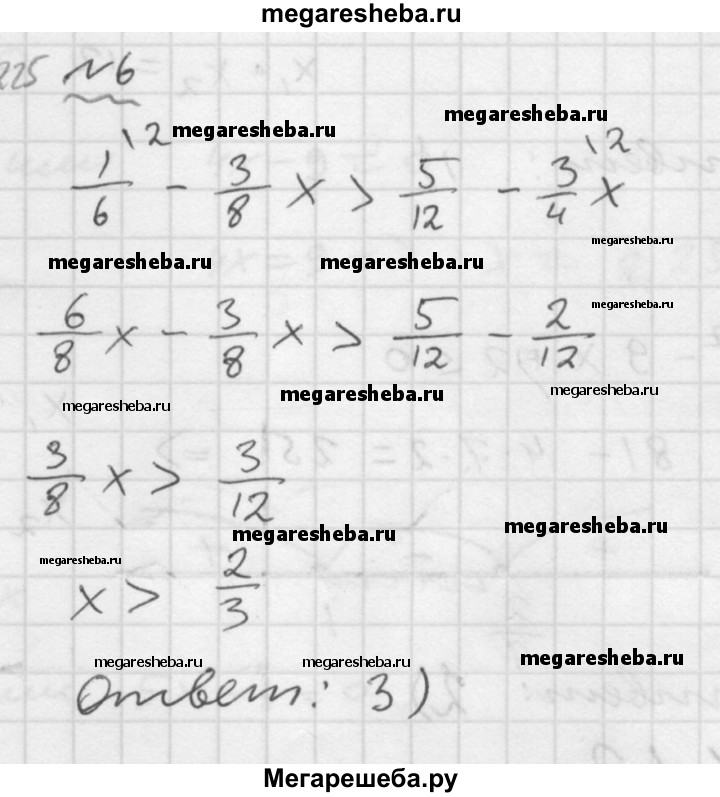 megaresheba.ru
225 №6
\2 megaresheba.ru megaresheba.ru \2
1/6 - 3/8 x > 5/12 - 3/4 x
megaresheba.ru
megaresheba.ru megaresheba.ru
megaresheba.ru
6/8 x - 3/8 x > 5/12 - 2/12
megaresheba.ru megaresheba.ru megaresheba.ru
3/8 x > 3/12
megaresheba.ru megaresheba.ru
megaresheba.ru
x > 2/3
megaresheba.ru megaresheba.ru megaresheba.ru
Ответ: 3)
Мегарешеба.ру